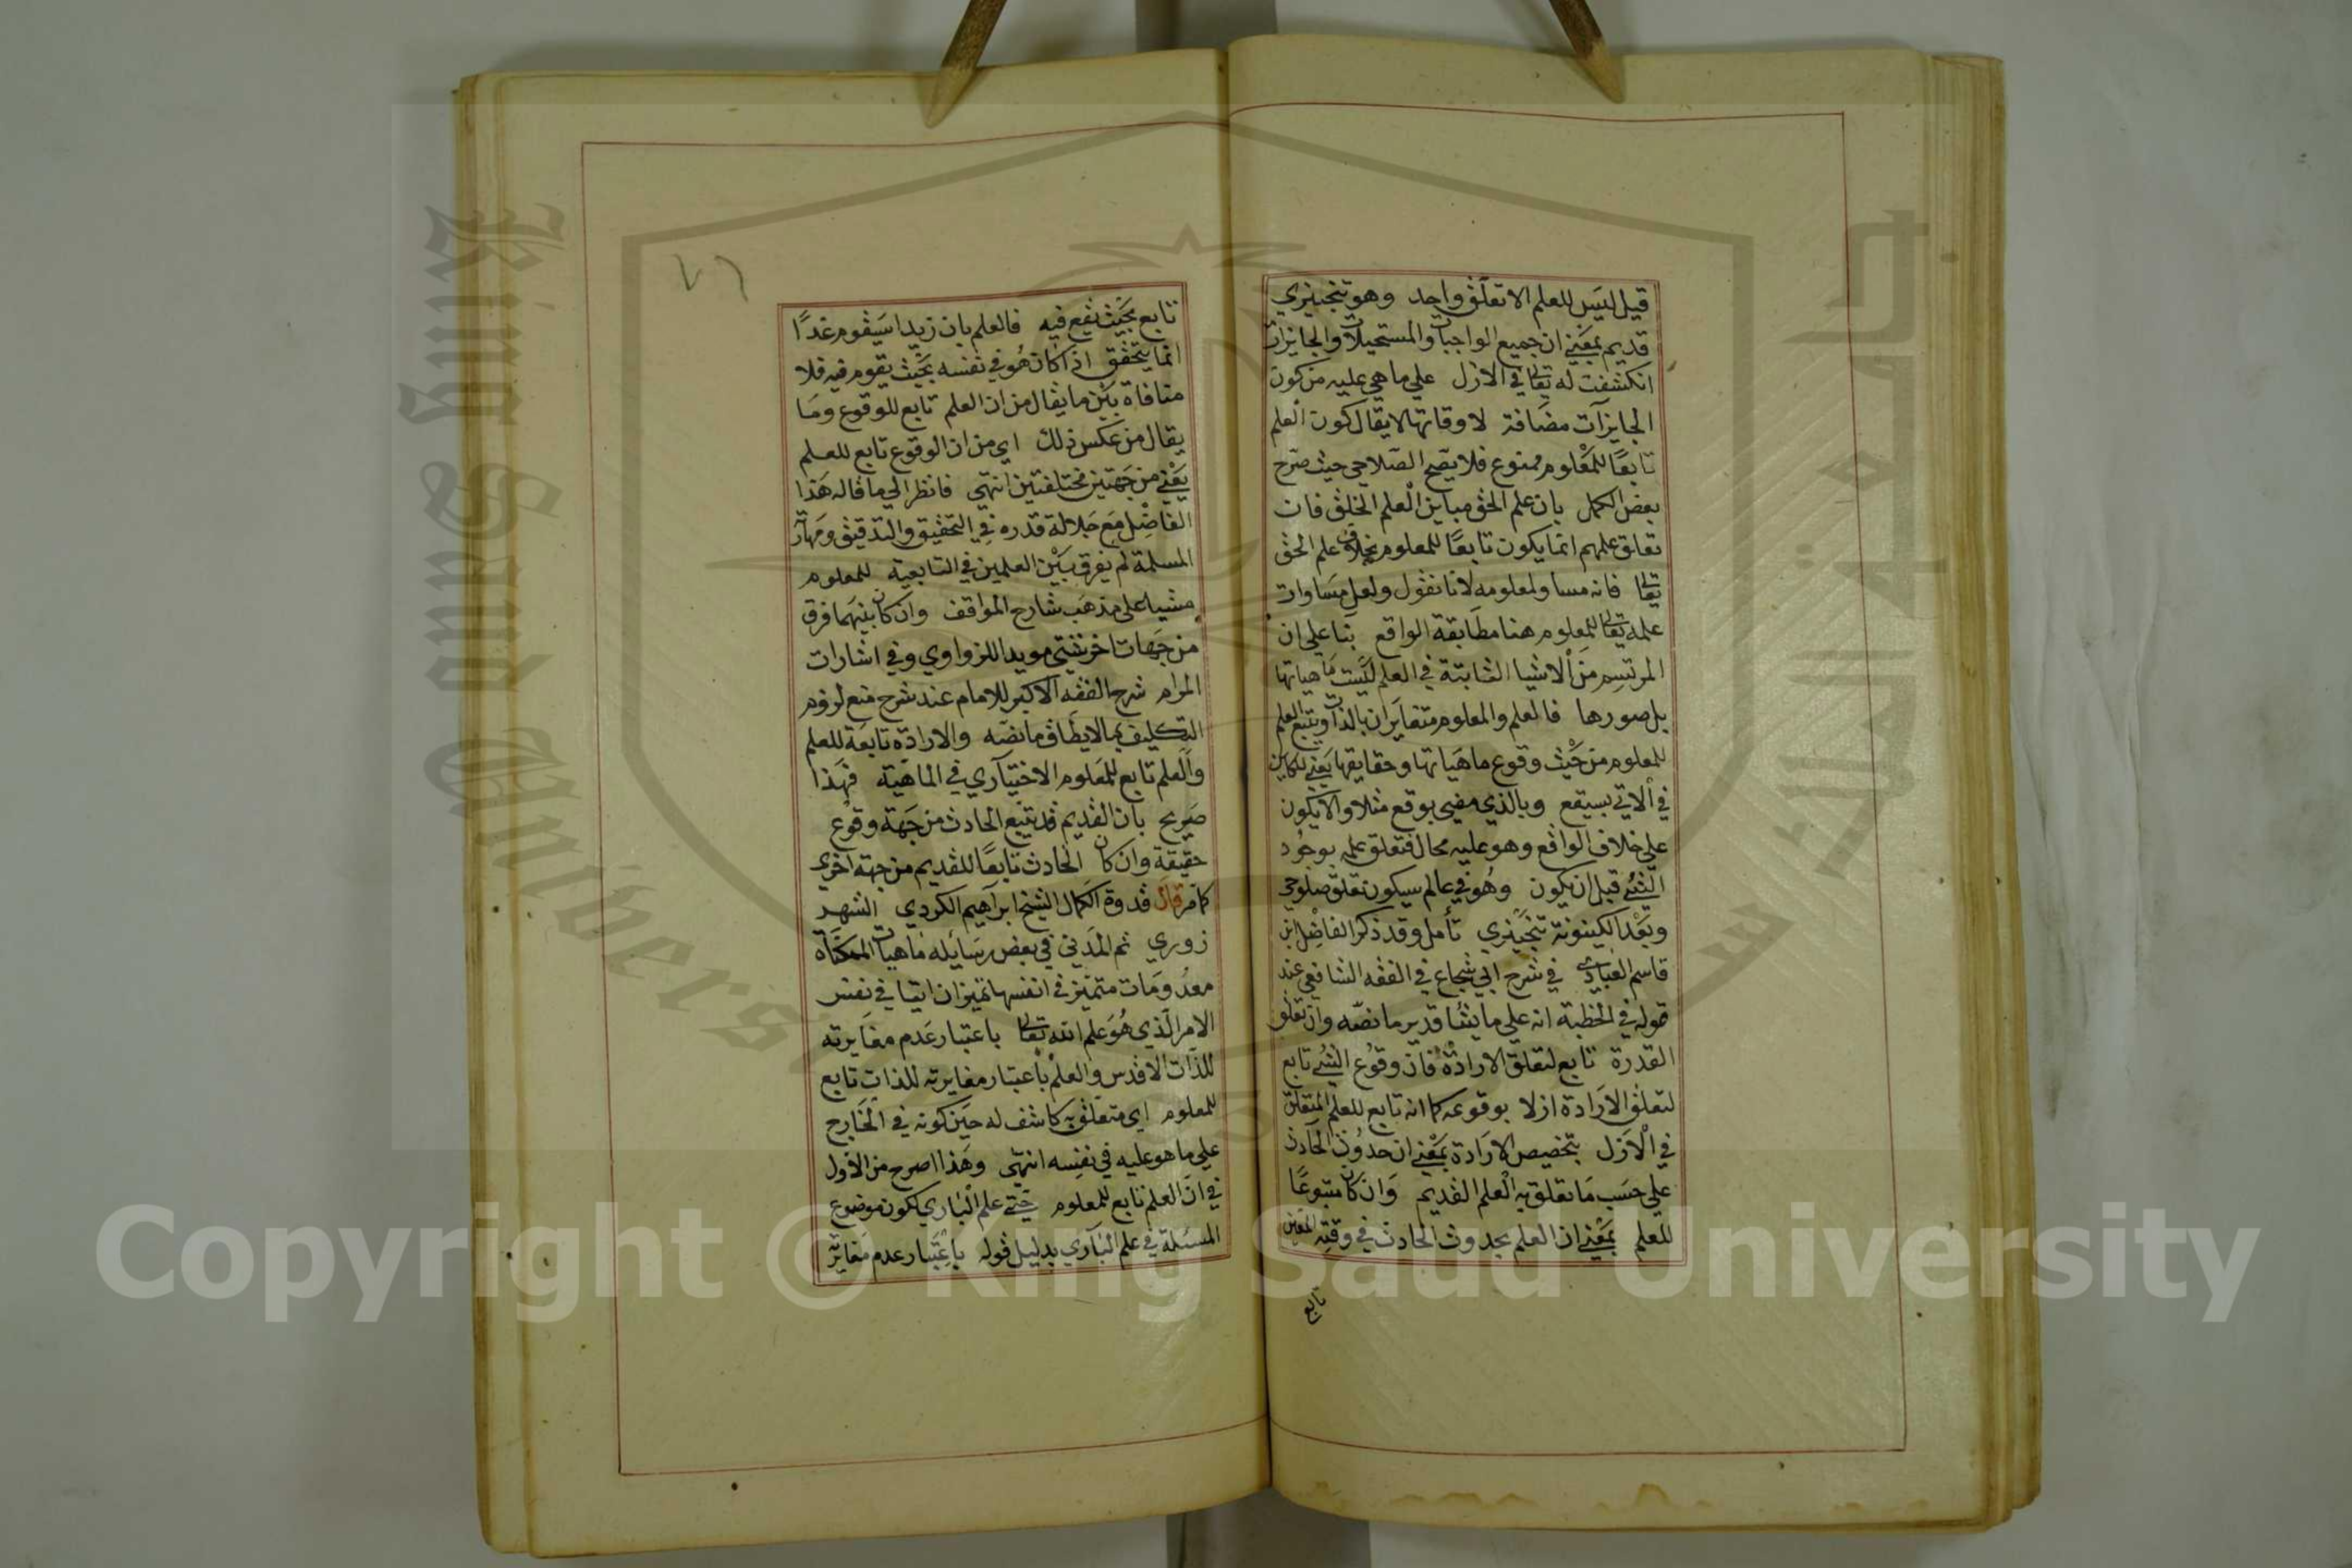 قيل ليس للعلم الا تعلق واحد وهو تنجيزي
قديم بمعني ان جميع الواجبات والمستحيلات والجايزات
انكشفت له تعالى في الازل علي ما هي عليه من كون
الجايزات مضافة لاوقاتها لا يقال كون العلم
تابعًا للمعلوم ممنوع فلا يصح الصلاحي حيث صرح
بعض الكمل بان علم الحق مباين لعلم الخلق فان
تعلق علمهم انما يكون تابعًا للمعلوم بخلاف علم الحق
تعالى فانه مساو لمعلومه لانا نقول ولعل مساوات
علمه تعالى للمعلوم هنا مطابقة الواقع بنا علي ان
المرتسم من الاشيا الثابتة في العلم ليست ماهياتها
بل صورها فالعلم والمعلوم متغايران بالذات ويتبع العلم
للمعلوم من حيث وقوع ماهياتها وحقايقها يعني للكاين
في الاتي بسيقع وبالذي مضي بوقع مثلا والا يكون
علي خلاف الواقع وهو عليه محال فتعلق علمه بوجود
الشيء قبل ان يكون وهو في عالم سيكون تعلق صلوحي
وبعد الكينونة تنجيزي تأمل وقد ذكر الفاضل ابن
قاسم العبادي في شرح ابي شجاع في الفقه الشافعي عند
قوله في الخطبة انه علي ما يشا قدير ما نصه وان تعلق
القدرة تابع لتعلق الارادة فان وقوع الشيء تابع
لتعلق الارادة ازلا بوقوعه كما انه تابع للعلم المتعلق
في الازل بتخصيص الارادة بمعني ان حدوث الحادث
علي حسب ما تعلق به العلم القديم وان كان متبوعًا
للعلم بمعني ان العلم بحدوث الحادث في وقته المعين
تابع
٧٦
تابع بحيث يقع فيه فالعلم بان زيدا سيقوم غدًا
انما يتحقق اذا كان هو في نفسه بحيث يقوم فيه فلا
منافاة بين ما يقال من ان العلم تابع للوقوع وما
يقال من عكس ذلك اي من ان الوقوع تابع للعلم
يعني من جهتين مختلفتين انتهي فانظر الي ما قاله هذا
الفاضل مع جلالة قدره في التحقيق والتدقيق ومهارته
المسلمة لم يفرق بين العلمين في التابعية للمعلوم
مشيا على مذهب شارح المواقف وان كان بينهما فرق
من جهات اخر نفي مويدا للزواوي وفي اشارات
المرام شرح الفقه الاكبر للامام عند شرح منع لزوم
التكليف بما لا يطاق ما نصه والارادة تابعة للعلم
والعلم تابع للمعلوم الاختياري في الماهية فهذا
صريح بان القديم قد يتبع الحادث من جهة وقوع
حقيقة وان كان الحادث تابعًا للقديم من جهة اخري
كما مر قال قدوة الكمال الشيخ ابراهيم الكردي الشهر
زوري ثم المدني في بعض رسائله ماهيات الممكنات
معدومات متميزة في انفسها تميزا ذاتيا في نفس
الامر الذي هو علم الله تعالى باعتبار عدم مغايرته
للذات الاقدس والعلم باعتبار مغايرته للذات تابع
للمعلوم اي متعلق به كاشف له حين كونه في الخارج
علي ما هو عليه في نفسه انتهي وهذا اصرح من الاول
في ان العلم تابع للمعلوم حتي علم الباري لكون موضوع
المسئلة في علم الباري بدليل قوله باعتبار عدم مغايرته
King Saud University
Copyright © King Saud University